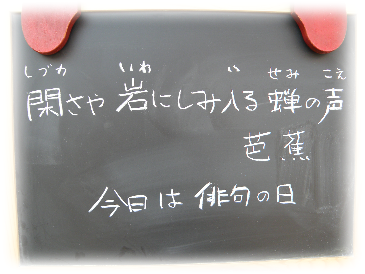 しづか いわ い せみ こえ
閑さや 岩にしみ入る 蝉の声
芭蕉
今日は 俳句の日